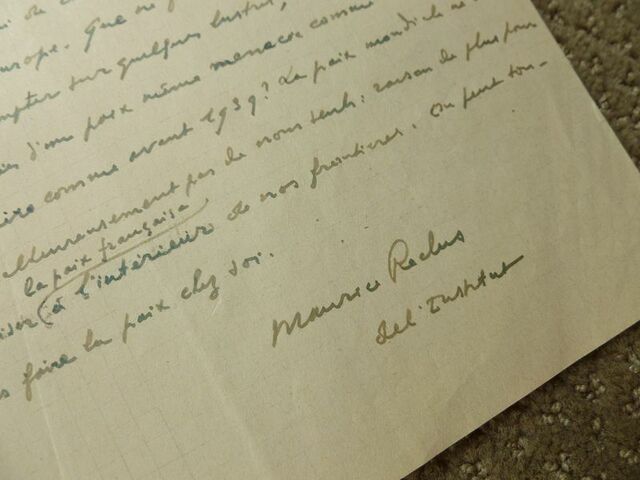 urope. Que ne
mpter sur quelques lustres,
d'une paix même menacée comme
comme avant 1939? La paix mondiale ne
lheureusement pas de nous seuls: raison de plus pour
la paix française
(à l'intérieur de nos frontières. On peut tou-
faire la paix chez soi.
Maurice Reclus
de l'Institut